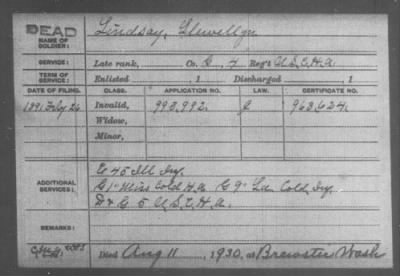 DEAD
NAME OF SOLDIER: Lindsay, Llewellyn
SERVICE: Late rank, Co. G, 4 Reg't U.S.C.H.A.
TERM OF SERVICE: Enlisted , 1 Discharged , 1
DATE OF FILING. CLASS. APPLICATION NO. LAW. CERTIFICATE NO.
1891 July 26 Invalid, 993,992. J 963,624.
Widow,
Minor,
ADDITIONAL SERVICES: E 45 Ill Inf.
G 1" Miss Cold H.A. G 9" La. Cold. Inf.
G 5 U.S.C.H.A.
REMARKS:
Died Aug 11, 1930, at Brewster Wash